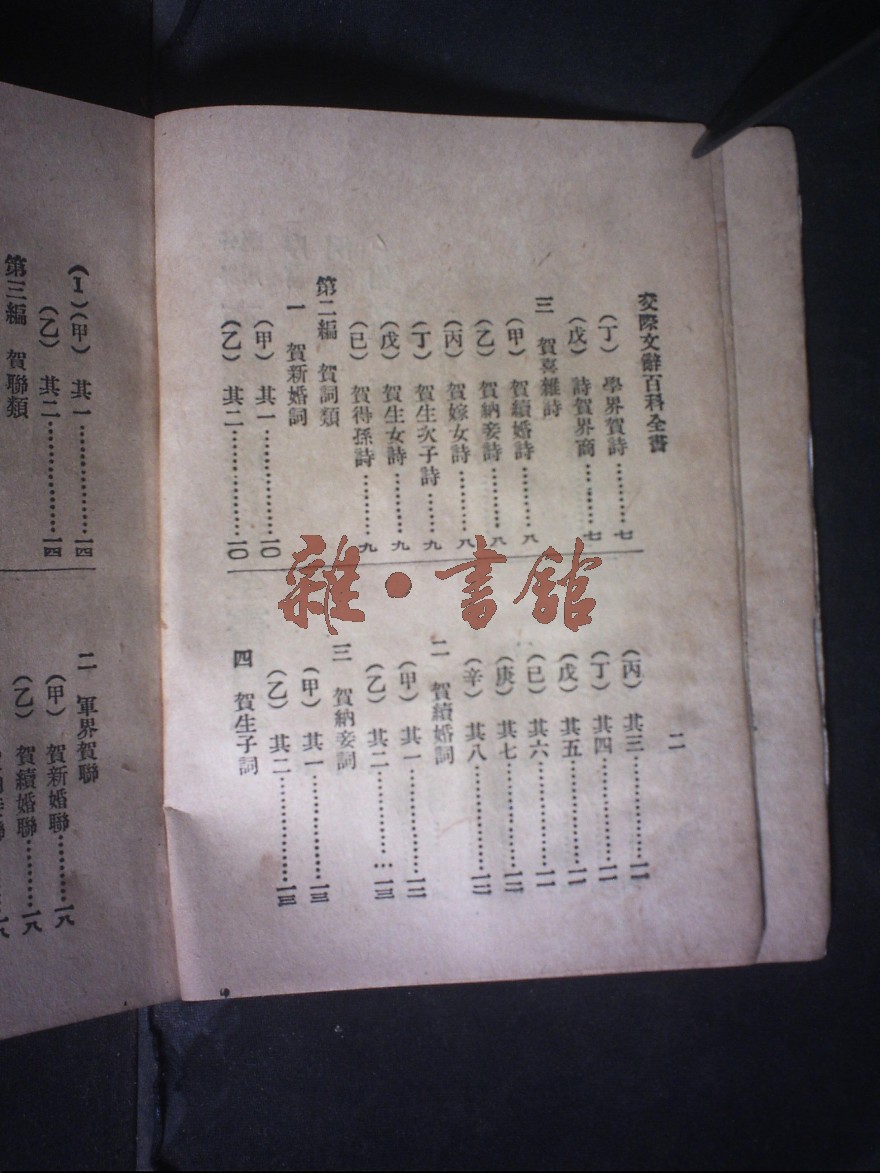 交際文辭百科全書
(丁) 學界賀詩…………七
(戊) 詩賀界商…………七
三 賀喜雜詩
(甲) 賀續婚詩…………八
(乙) 賀納妾詩…………八
(丙) 賀嫁女詩…………八
(丁) 賀生次子詩…………九
(戊) 賀生女詩…………九
(已) 賀得孫詩…………九
第二編 賀詞類
一 賀新婚詞
(甲) 其一…………一〇
(乙) 其二…………一〇
二
(丙) 其三…………一一
(丁) 其四…………一一
(戊) 其五…………一一
(已) 其六…………一一
(庚) 其七…………一二
(辛) 其八…………一二
二 賀續婚詞
(甲) 其一…………一二
(乙) 其二…………一三
三 賀納妾詞
(甲) 其一…………一三
(乙) 其二…………一三
四 賀生子詞
(1)(甲) 其一…………一四
(乙) 其二…………一四
第三編 賀聯類
二 軍界賀聯
(甲) 賀新婚聯…………一八
(乙) 賀續婚聯…………一八
雜·書館